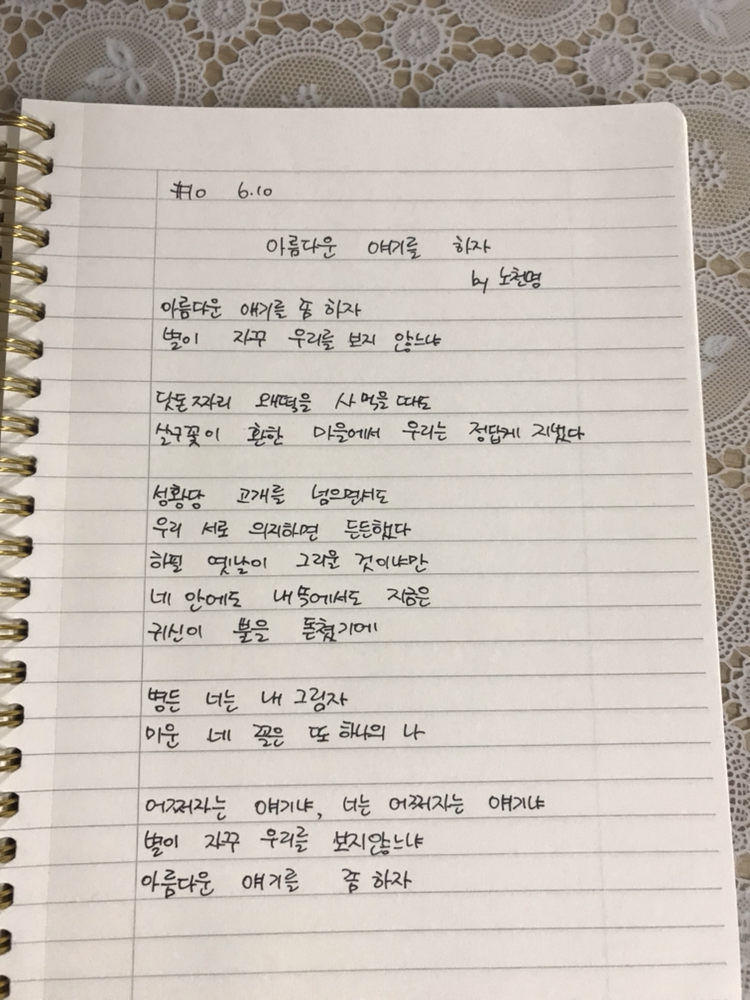 #10 6.10
아름다운 얘기를 하자
by 노천명
아름다운 얘기를 좀 하자
별이 자꾸 우리를 보지 않느냐
닷돈짜리 왜떡을 사먹을 때도
살구꽃이 환한 마을에서 우리는 정답게 지냈다
성황당 고개를 넘으면서도
우리 서로 의지하면 든든했다
하필 옛날이 그리운 것이냐만
네 안에도 내 속에서도 지금은
귀신이 뿔을 돋쳤기에
병든 너는 내 그림자
미운 네 꼴은 또 하나의 나
어쩌자는 얘기냐, 너는 어쩌자는 얘기냐
별이 자꾸 우리를 보지않느냐
아름다운 얘기를 좀 하자